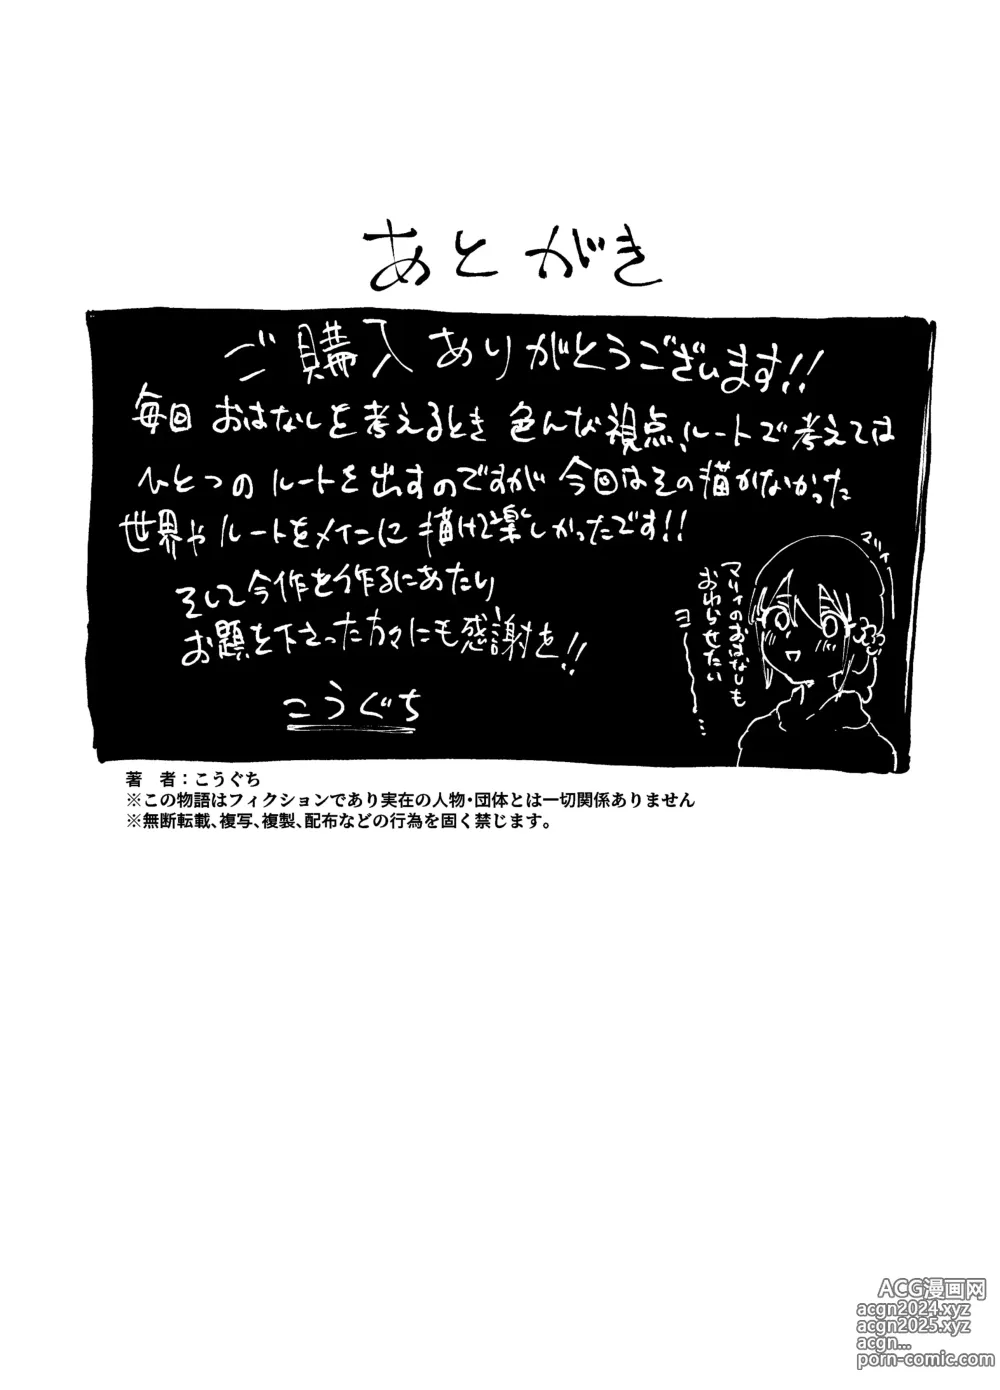 あとがき
ご購入ありがとうございます!!
毎回 おはなしを考えるとき 色んな視点、ルートで考えては
ひとつのルートを出すのですが 今回はその描かなかった
世界や ルートをメインに 描けて楽しかったです!!
そして今作を作るにあたり
お題を下さった方々にも感謝を!!
こうぐち
マリィ
マリィのおはなしも
おわらせたい
ヨー…
著　者：こうぐち
※この物語はフィクションであり実在の人物・団体とは一切関係ありません
※無断転載、複写、複製、配布などの行為を固く禁じます。
ACG漫画网
acgn2024.xyz
acgn2025.xyz
acgn...
porn-comic.com